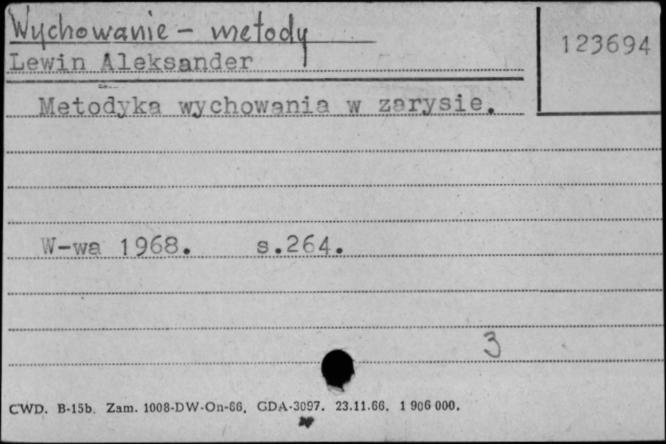 Wychowanie - metody
123694
Lewin Aleksander
Metodyka wychowania w zarysie.
W-wa 1968. s.264.
3
CWD. B-15b. Zam. 1008-DW-On-66. GDA-3097. 23.11.66. 1 906 000.